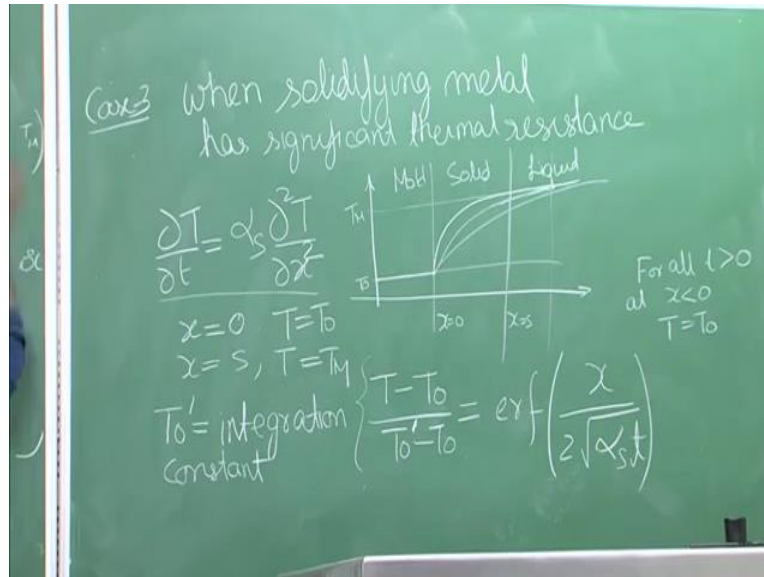 Case-3 When solidifying metal
has significant thermal resistance
Mold Solid Liquid
∂T/∂t = αs ∂²T/∂x²
TM
T0
x=0 x=s
For all t>0
at x<0
T=T0
x=0 T=T0
x=S, T=TM
T0' = integration
constant
(T-T0)/(T0'-T0) = erf(x/(2√αst))
TM)